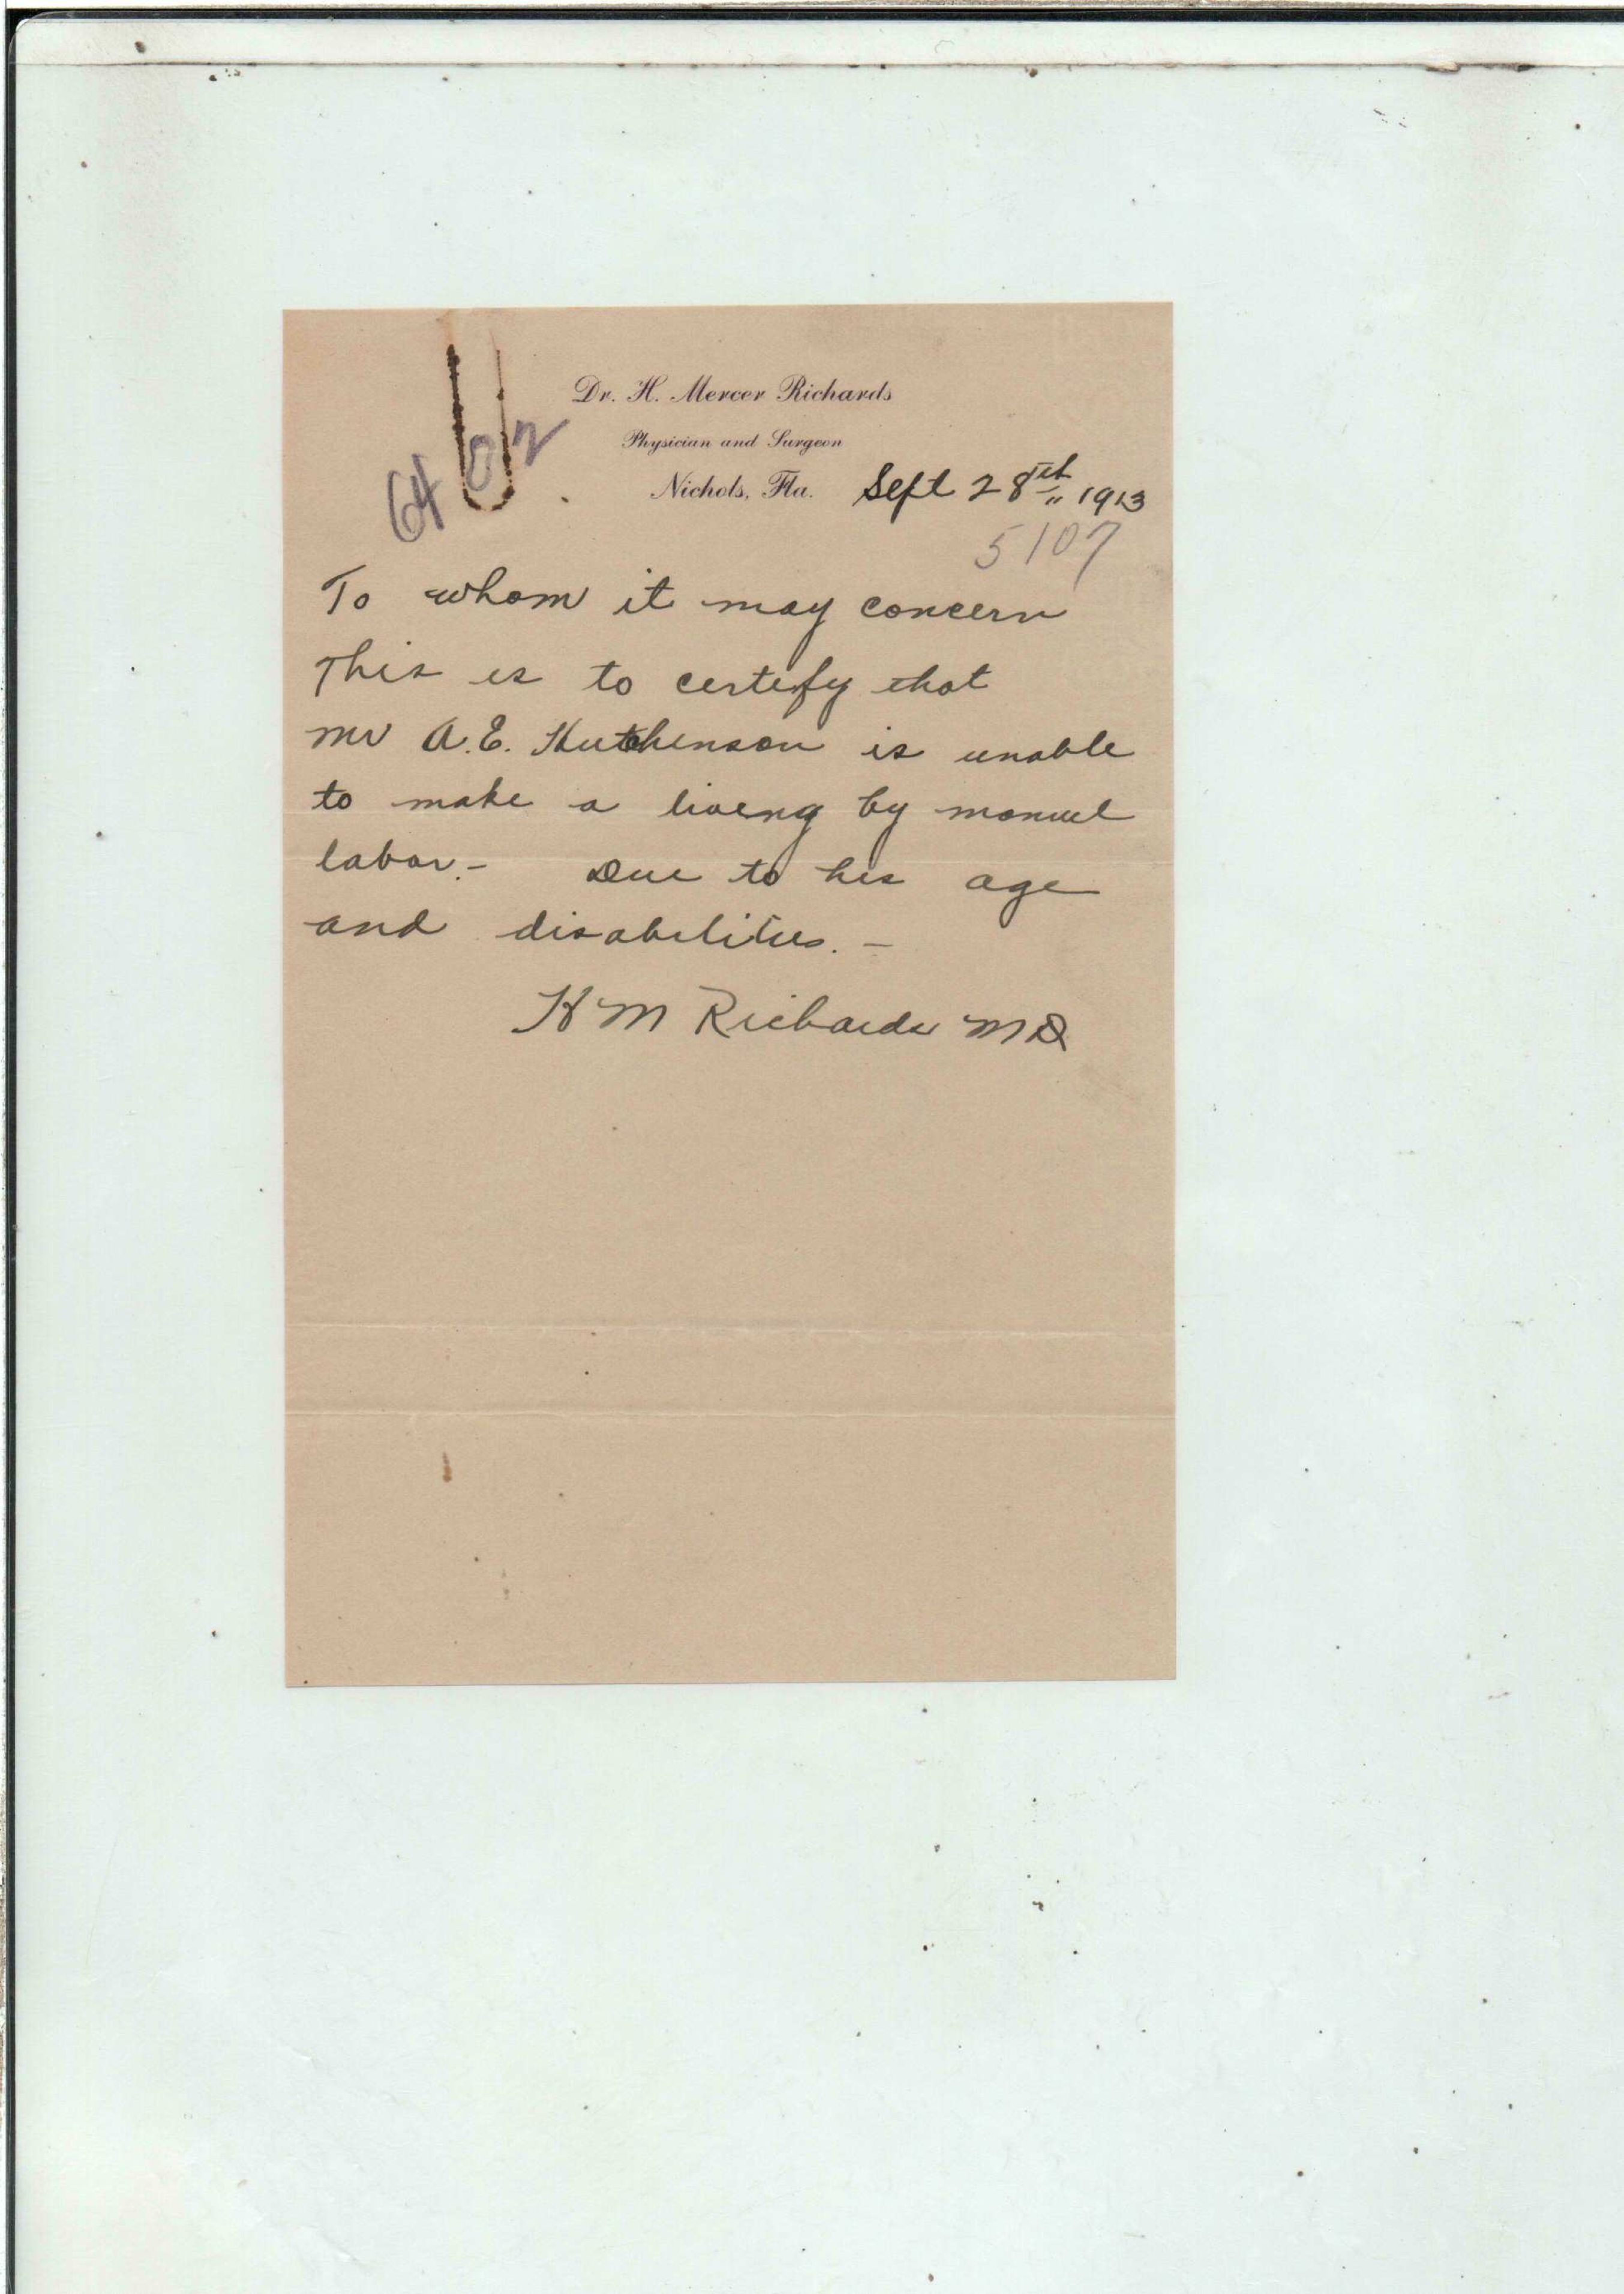 Dr. H. Mercer Richards
Physician and Surgeon
Nichols, Fla. Sept 28th 1913
6402
5107
To whom it may concern
This is to certify that
Mr A.E. Hutchenson is unable
to make a living by manuel
labor.- Due to his age
and disabilities. -
H M Richards MD